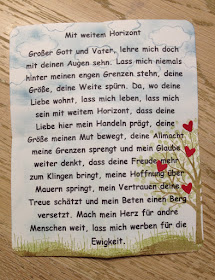 Mit weitem Horizont
Großer Gott und Vater, lehre mich doch
mit deinen Augen sehn. Lass mich niemals
hinter meinen engen Grenzen stehn, deine
Größe, deine Weite spürn. Da, wo deine
Liebe wohnt, lass mich leben, lass mich
sein mit weitem Horizont, dass deine
Liebe hier mein Handeln prägt, deine
Größe meinen Mut bewegt, deine Allmacht
meine Grenzen sprengt und mein Glaube
weiter denkt, dass deine Freude mehr
zum Klingen bringt, meine Hoffnung über
Mauern springt, mein Vertrauen deine
Treue schätzt und mein Beten einen Berg
versetzt. Mach mein Herz für andre
Menschen weit, lass mich werben für die
Ewigkeit.